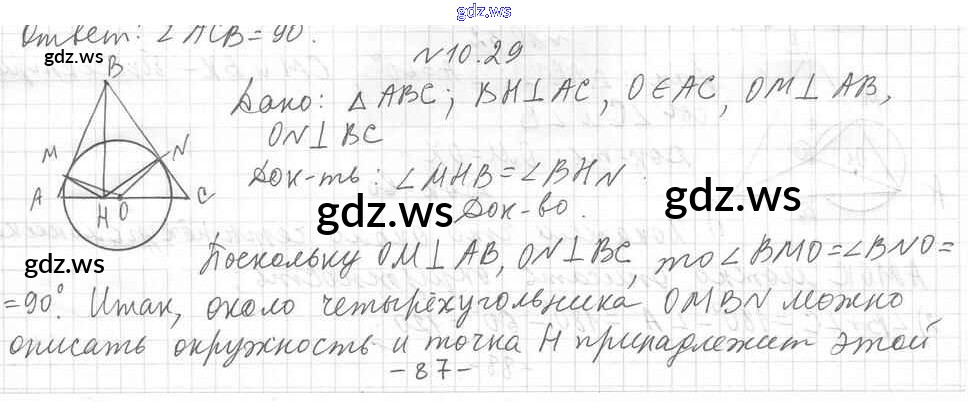 gdz.ws
Ответ: ∠ACB = 90.
gdz.ws
№10.29
B
Дано: △ABC; BH⊥AC, O∈AC, OM⊥AB,
ON⊥BC
M N
Док-ть: ∠MHB=∠BHN.
A H O C
gdz.ws gdz.ws
Док-во.
gdz.ws
Поскольку OM⊥AB, ON⊥BC, то ∠BMO=∠BNO=
=90°. Итак, около четырёхугольника OMBN можно
описать окружность и точка H принадлежит этой
-87-
gdz.ws gdz.ws